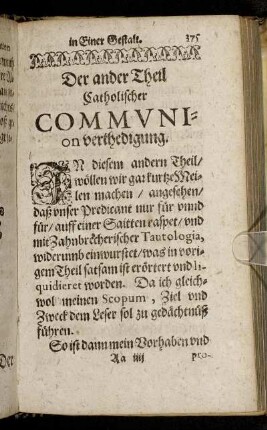 in Einer Gestalt. 375
Der ander Theil
Catholischer
COMMVNI-
on verthedigung.
IN diesem andern Theil/
wöllen wir gar kurtze Mei-
len machen / angesehen/
daß vnser Predicant nur für vnnd
für/ auff einer Saitten raspet/ vnd
mit Zahnbrecherischer Tautologia,
widerumb einwurstet/ was in vori-
gem Theil satsam ist erörtert vnd li-
quidieret worden. Da ich gleich-
wol meinen Scopum, Ziel vnd
Zweck dem Leser sol zu gedächtnüß
führen.
So ist dann mein Vorhaben vnd
Aa iiij pro-